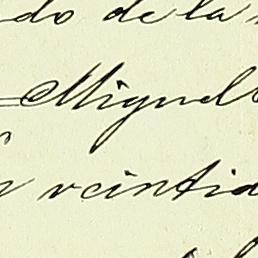 do de la
Miguel
veintid